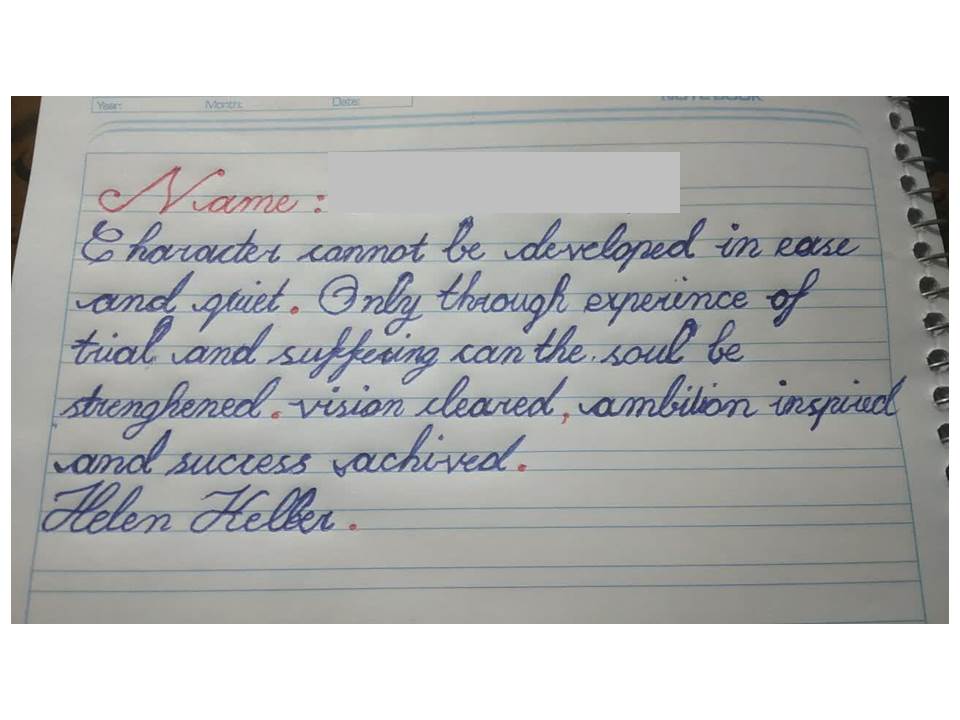 Year: Month: Date: NOTEBOOK
Name :
Character cannot be developed in ease
and quiet. Only through experince of
trial and suffering can the soul be
strenghened. vision cleared, ambition inspired
and success achived.
Helen Keller.